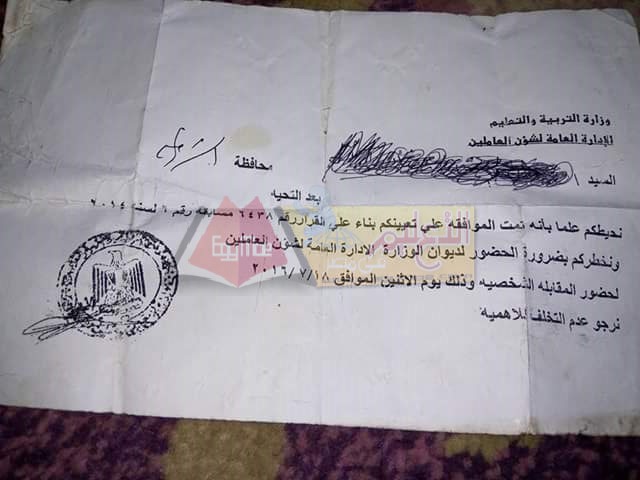 وزارة التربية والتعليم
للإدارة العامة لشؤن العاملين
السيد
محافظة
بعد التحيه
نحيطكم علما بأنه تمت الموافقه علي تعيينكم بناء علي القراررقم ٦٤٣٨ مسابقه رقم ١ لسنة ٢٠١٤
ونخطركم بضرورة الحضور لديوان الوزارة الادارة العامة لشؤن العاملين
لحضور المقابله الشخصيه وذلك يوم الاثنين الموافق ٢٠١٦/٧/١٨
نرجو عدم التخلف للاهميه